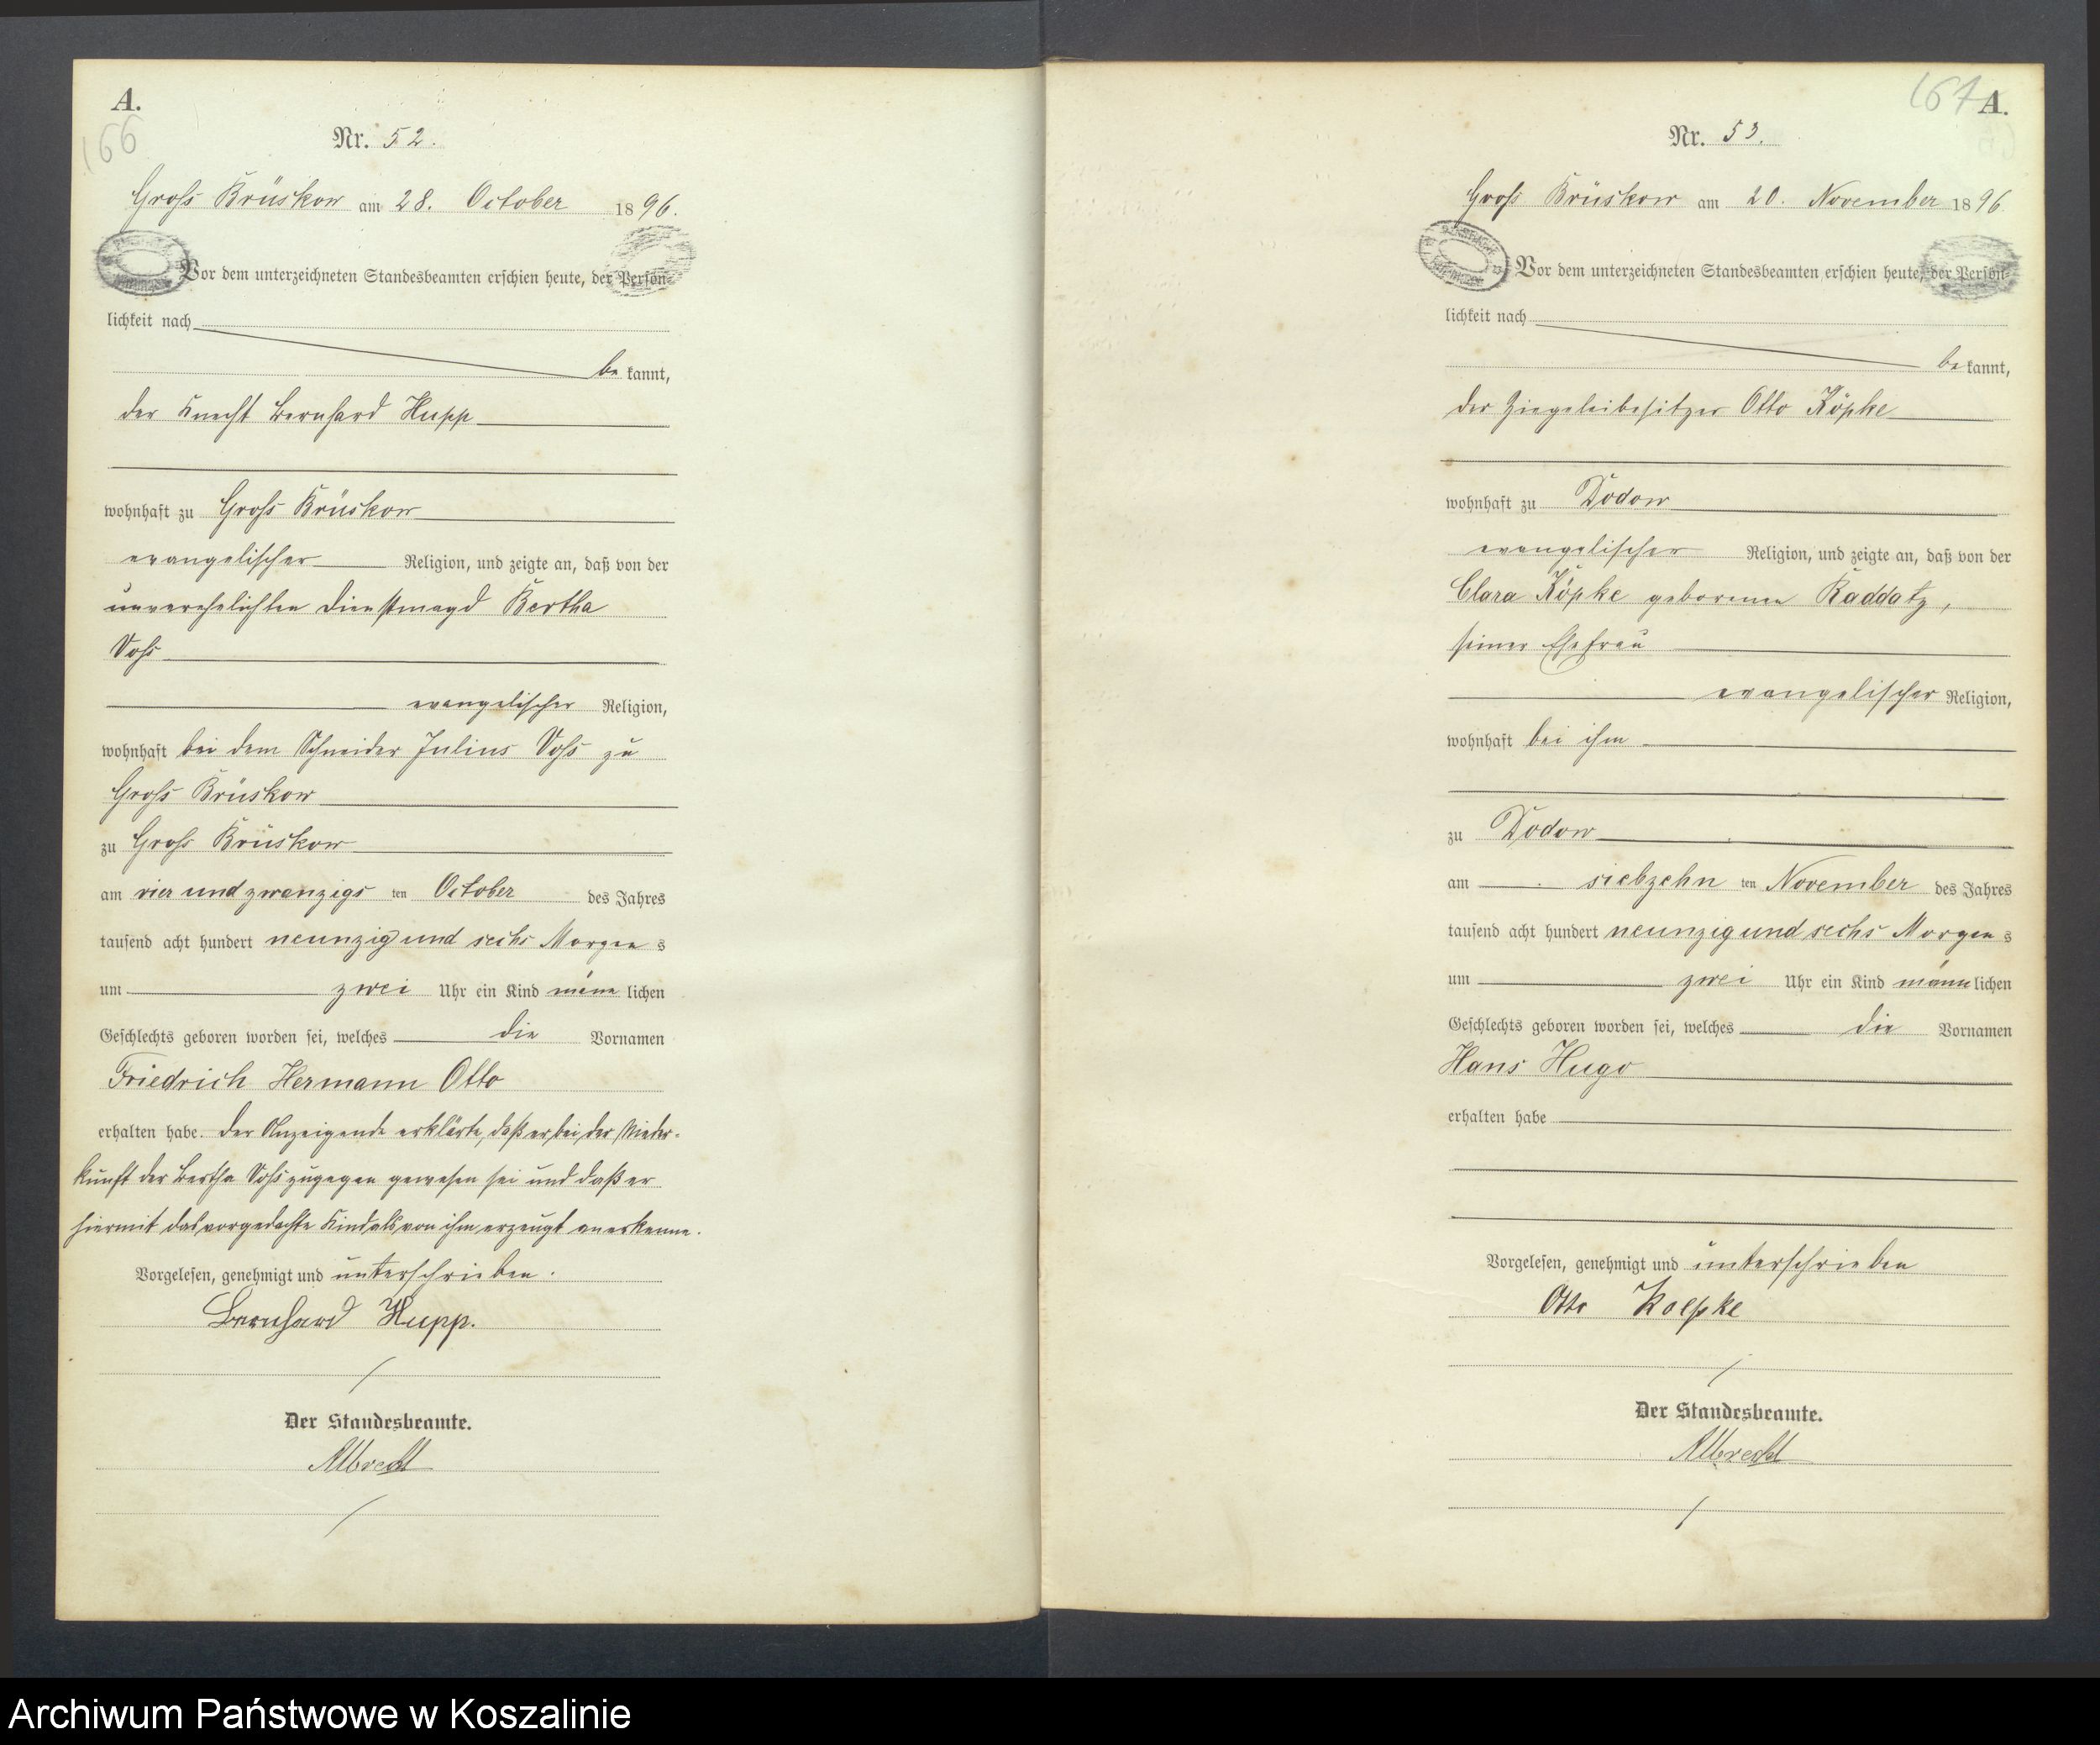 A.
166
Nr. 52.
Groß Brüskow am 28. October 1896.
Vor dem unterzeichneten Standesbeamten erschien heute, der Persön=
lichkeit nach
be kannt,
der Knecht Bernhard Hupp
wohnhaft zu Groß Brüskow
evangelischer Religion, und zeigte an, daß von der
unverehelichten Dienstmagd Bertha
Voß
evangelischer Religion,
wohnhaft bei dem Schneider Julius Voß zu
Groß Brüskow
zu Groß Brüskow
am vier und zwanzigs ten October des Jahres
tausend acht hundert neunzig und sechs Morgen s
um zwei Uhr ein Kind männ lichen
Geschlechts geboren worden sei, welches die Vornamen
Friedrich Hermann Otto
erhalten habe. Der Anzeigende erklärte, daß er bei der Nieder-
kunft der Bertha Voß zugegen gewesen sei und daß er
hiermit das vorgedachte Kind als von ihm erzeugt anerkenne.
Vorgelesen, genehmigt und unterschrieben.
Bernhard Hupp.
Der Standesbeamte.
Albrecht
167 A.
Nr. 53.
Groß Brüskow am 20. November 1896.
Vor dem unterzeichneten Standesbeamten erschien heute, der Persön=
lichkeit nach
be kannt,
der Ziegeleibesitzer Otto Köpke
wohnhaft zu Dodow
evangelischer Religion, und zeigte an, daß von der
Clara Köpke geborenen Raddatz,
seiner Ehefrau
evangelischer Religion,
wohnhaft bei ihm
zu Dodow
am siebzehn ten November des Jahres
tausend acht hundert neunzig und sechs Morgen s
um zwei Uhr ein Kind männ lichen
Geschlechts geboren worden sei, welches die Vornamen
Hans Hugo
erhalten habe
Vorgelesen, genehmigt und unterschrieben
Otto Koepke
Der Standesbeamte.
Albrecht
Archiwum Państwowe w Koszalinie